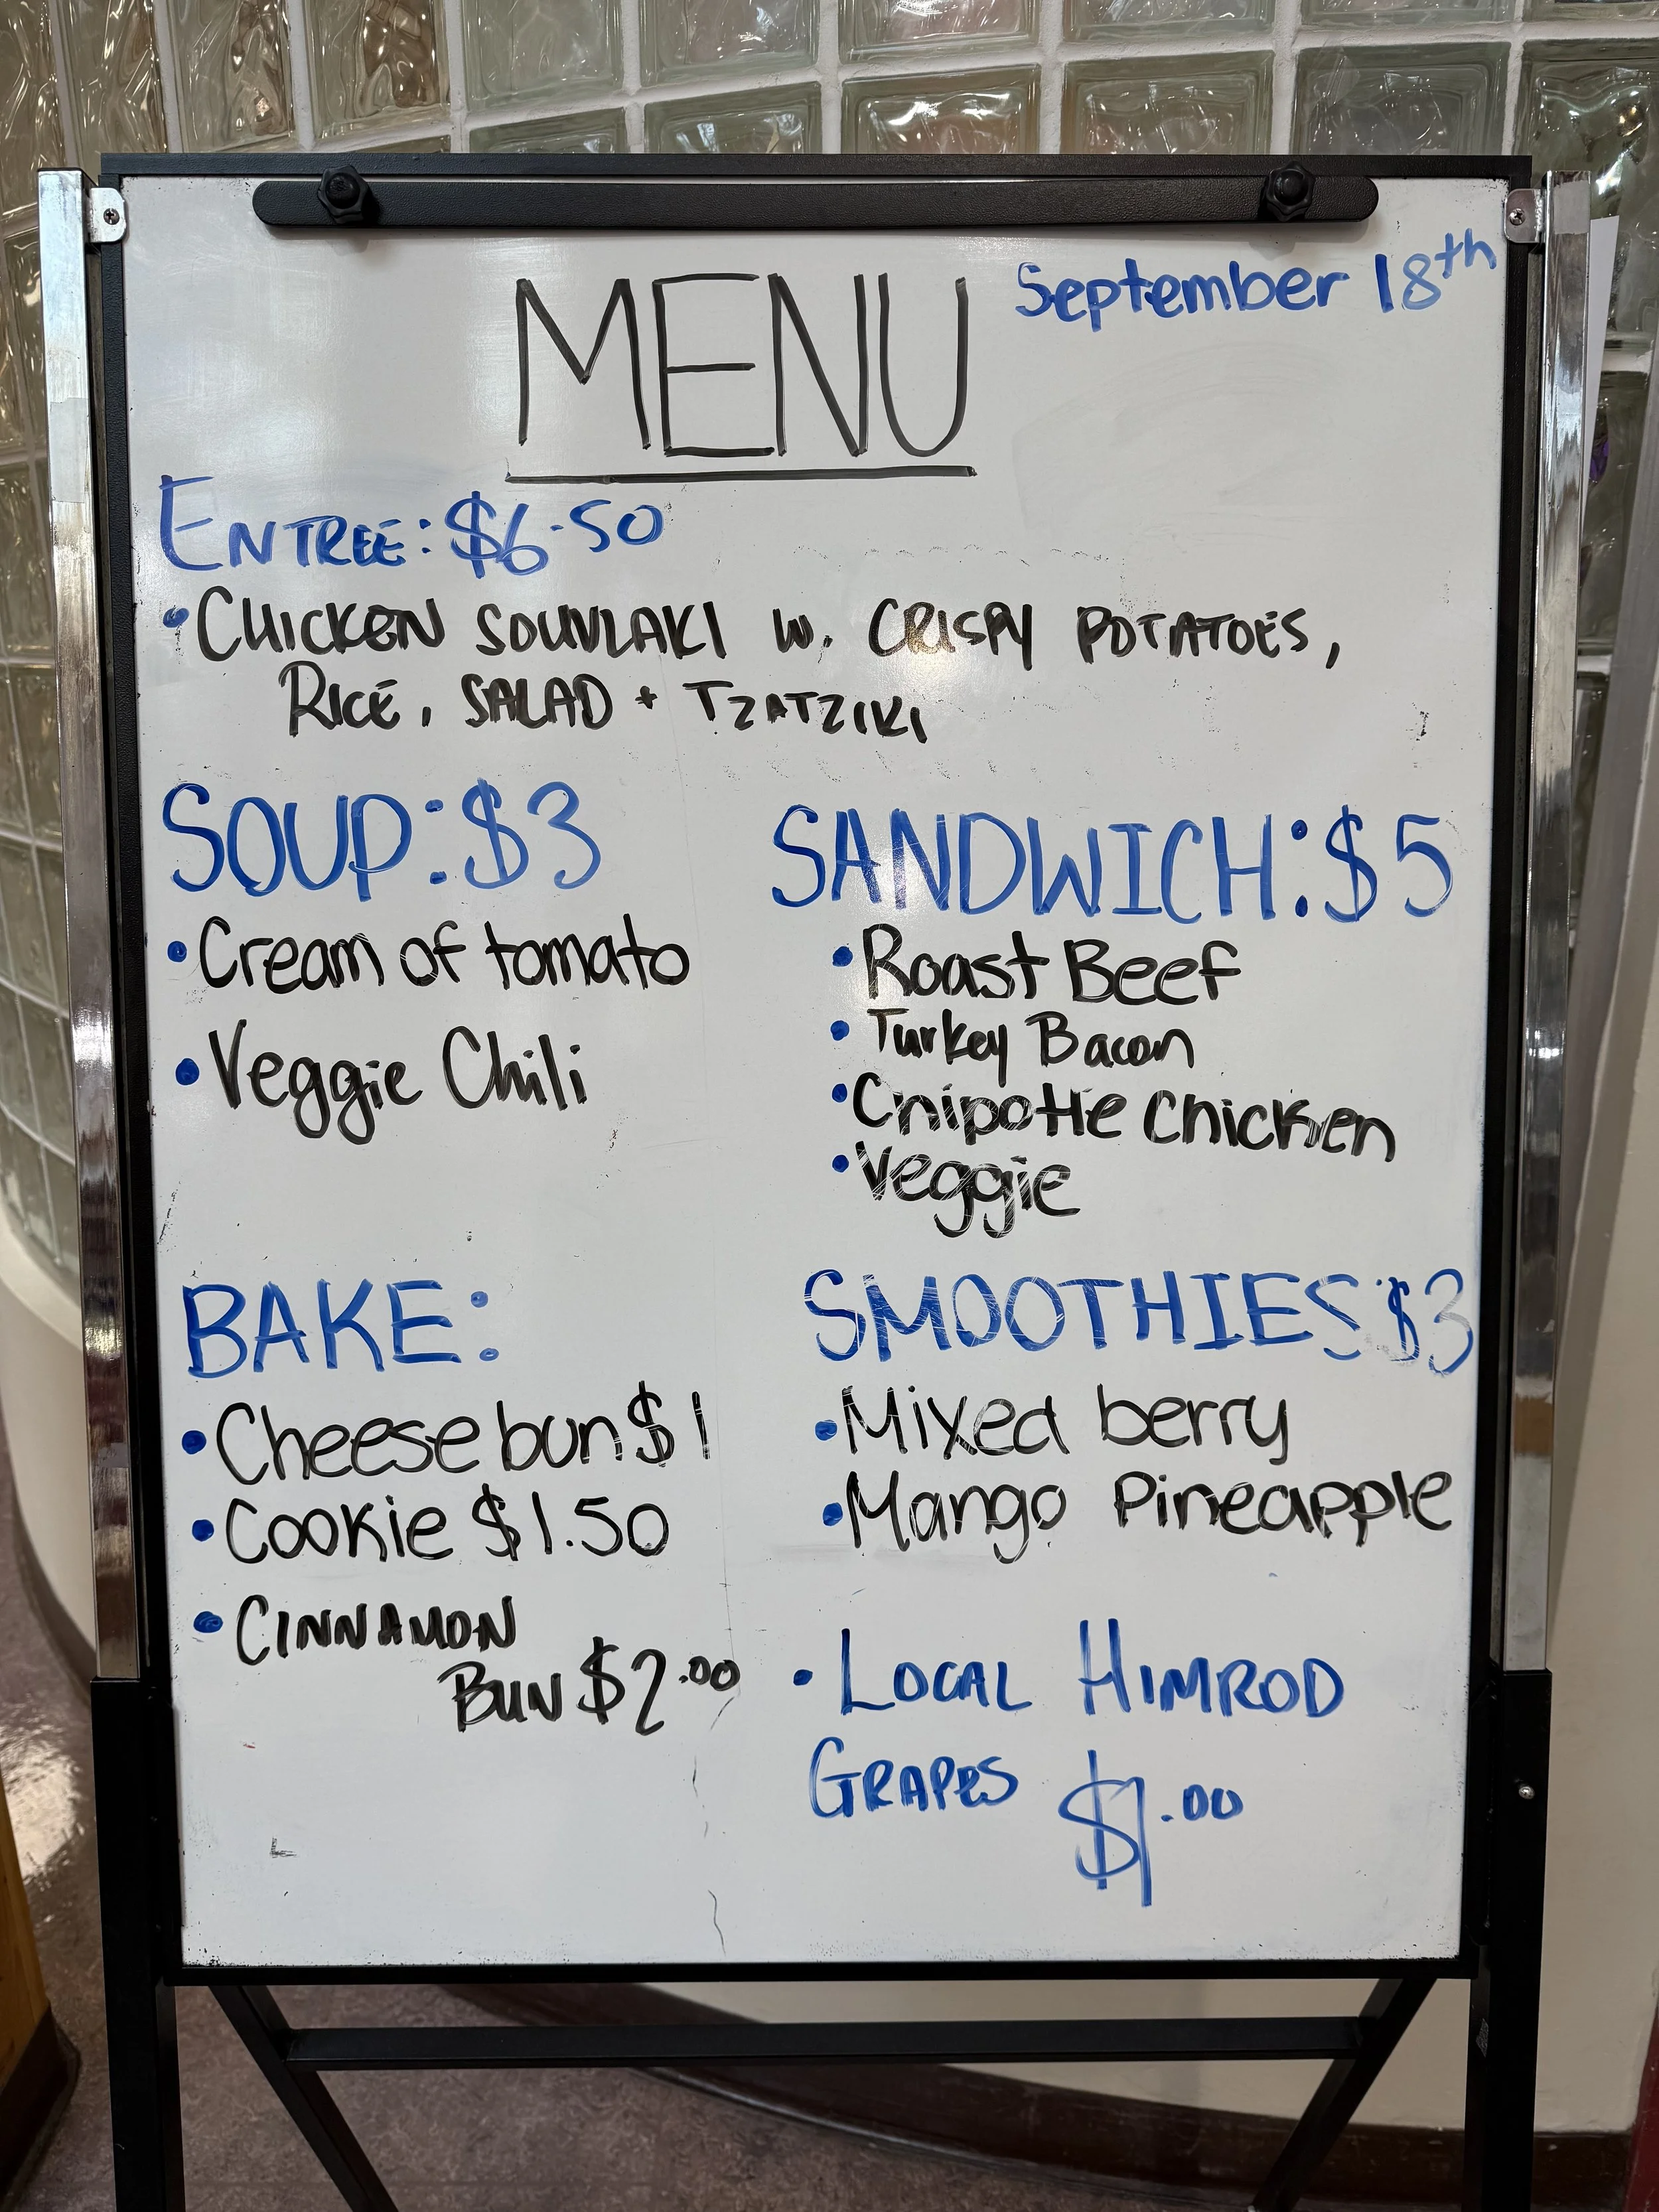 MENU
September 18th
ENTREE: $6.50
• CHICKEN SOUVLAKI W. CRISPY POTATOES,
RICE, SALAD + TZATZIKI
SOUP: $3
• Cream of tomato
• Veggie Chili
SANDWICH: $5
• Roast Beef
• Turkey Bacon
• Chipotle Chicken
• Veggie
BAKE:
• Cheese bun $1
• Cookie $1.50
• CINNAMON
BUN $2.00
SMOOTHIES $3
• Mixed berry
• Mango Pineapple
• LOCAL HIMROD
GRAPES $1.00